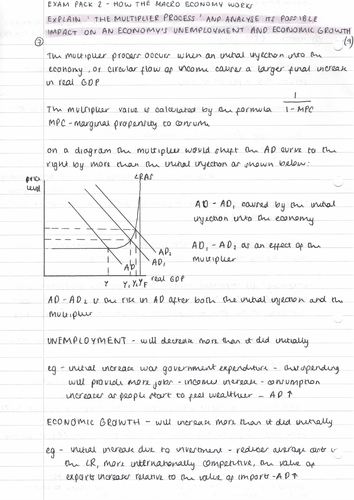 EXAM PACK 2 - HOW THE MACRO ECONOMY WORKS
EXPLAIN 'THE MULTIPLIER PROCESS' AND ANALYSE ITS POSSIBLE
IMPACT ON AN ECONOMY'S UNEMPLOYMENT AND ECONOMIC GROWTH
(9)
The multiplier process occurs when an initial injection into the
economy, or circular flow of income causes a larger final increase
in real GDP
The multiplier value is calculated by the formula 1/1-MPC
MPC - marginal propensity to consume
on a diagram the multiplier would shift the AD curve to the
right by more than the initial injection as shown below:
price level
LRAS
AD - AD1 caused by the initial
injection into the economy
AD1 - AD2 as an effect of the
multiplier
AD2
AD1
AD
Y Y1 Y2 YF real GDP
AD - AD2 is the rise in AD after both the initial injection and the
multiplier
UNEMPLOYMENT - will decrease more than it did initially
eg - initial increase was government expenditure - this spending
will provide more jobs - incomes increase - consumption
increases as people start to feel wealthier - AD↑
ECONOMIC GROWTH - will increase more than it did initially
eg - initial increase due to investment - reduces average costs in
the LR, more internationally competitive, the value of
exports increases relative to the value of imports - AD↑